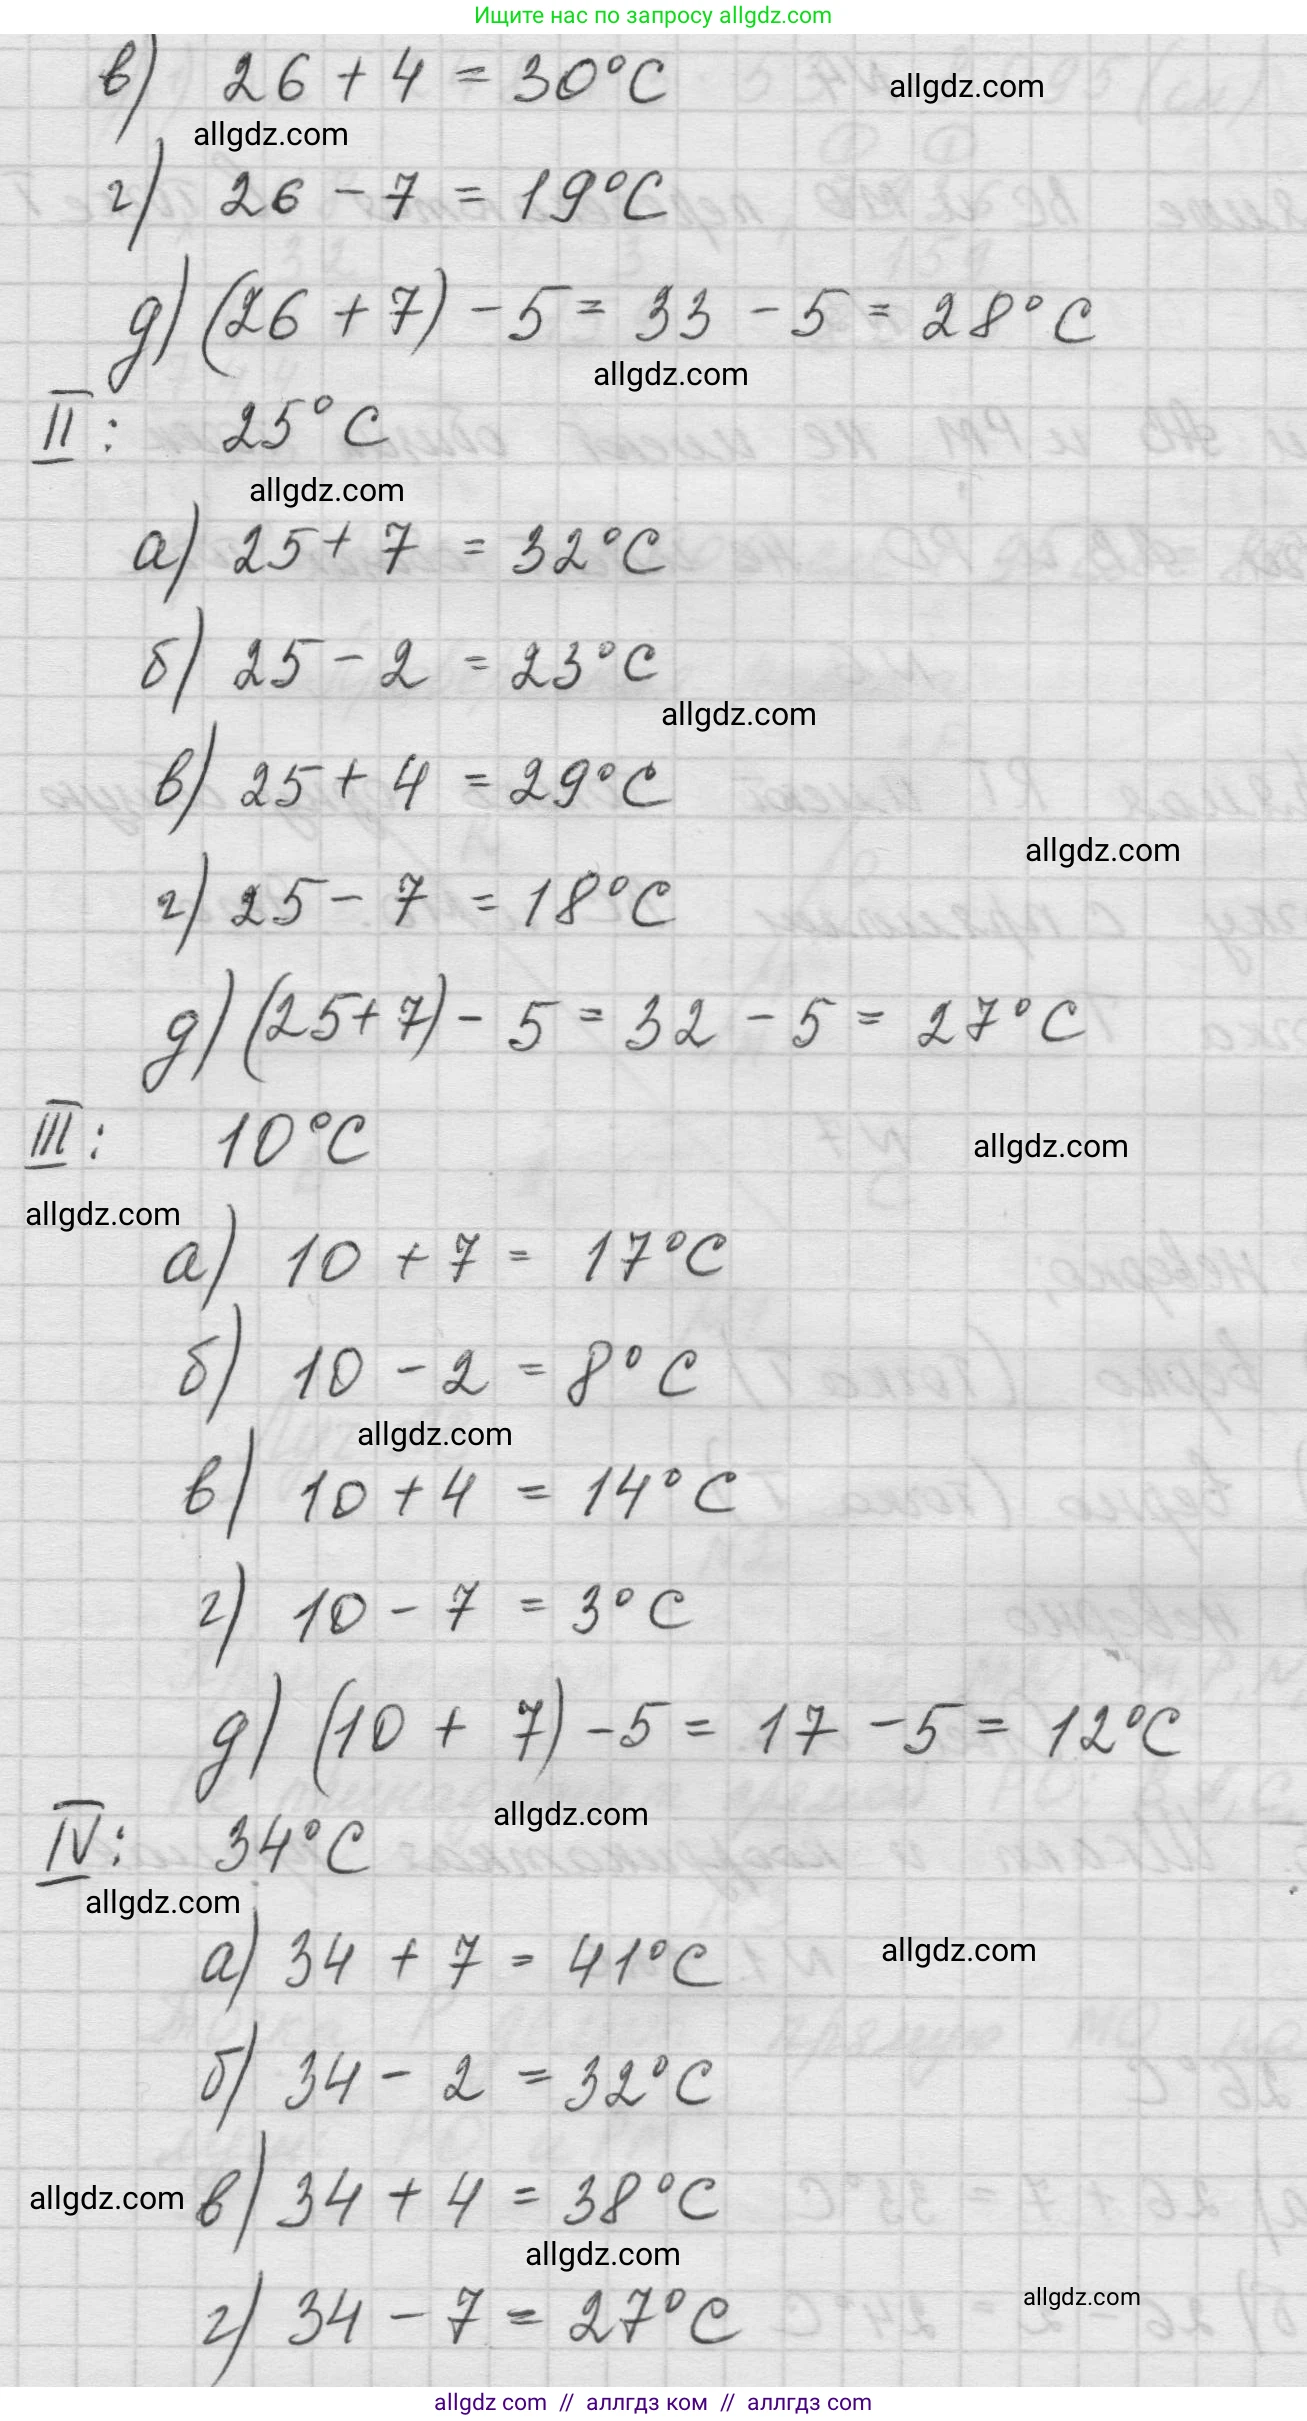 Ищите нас по запросу allgdz.com
в) 26 + 4 = 30°C
allgdz.com
allgdz.com
г) 26 - 7 = 19°C
д) (26 + 7) - 5 = 33 - 5 = 28°C
allgdz.com
II: 25°C
allgdz.com
а) 25 + 7 = 32°C
б) 25 - 2 = 23°C
allgdz.com
в) 25 + 4 = 29°C
allgdz.com
г) 25 - 7 = 18°C
д) (25 + 7) - 5 = 32 - 5 = 27°C
III: 10°C
allgdz.com
allgdz.com
а) 10 + 7 = 17°C
б) 10 - 2 = 8°C
allgdz.com
в) 10 + 4 = 14°C
г) 10 - 7 = 3°C
д) (10 + 7) - 5 = 17 - 5 = 12°C
allgdz.com
IV: 34°C
allgdz.com
а) 34 + 7 = 41°C
allgdz.com
б) 34 - 2 = 32°C
allgdz.com
в) 34 + 4 = 38°C
allgdz.com
allgdz.com
г) 34 - 7 = 27°C
allgdz com // аллгдз ком // аллгдз com